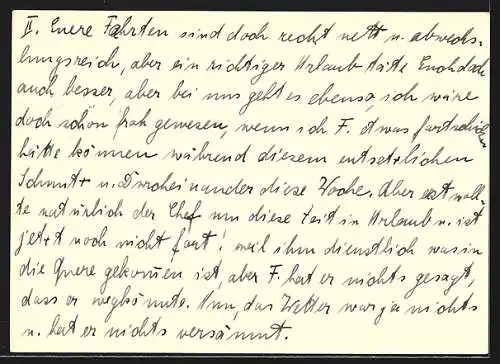 II. Euere Fahrten sind doch recht nett u. abwechs-
lungsreich, aber ein richtiger Urlaub täte Euch doch
auch besser, aber bei uns geht es ebenso, ich wäre
doch schon froh gewesen, wenn ich F. etwas fortschicken
hätte können während diesem entsetzlichen
Schmutz u. Durcheinander diese Woche. Aber erst woll-
te natürlich der Chef um diese Zeit in Urlaub u. ist
jetzt noch nicht fort! weil ihm dienstlich was in
die Quere gekommen ist, aber F. hat er nichts gesagt,
dass er wegkönnte. Nun, das Wetter war ja nichts
u. hat er nichts versäumt.